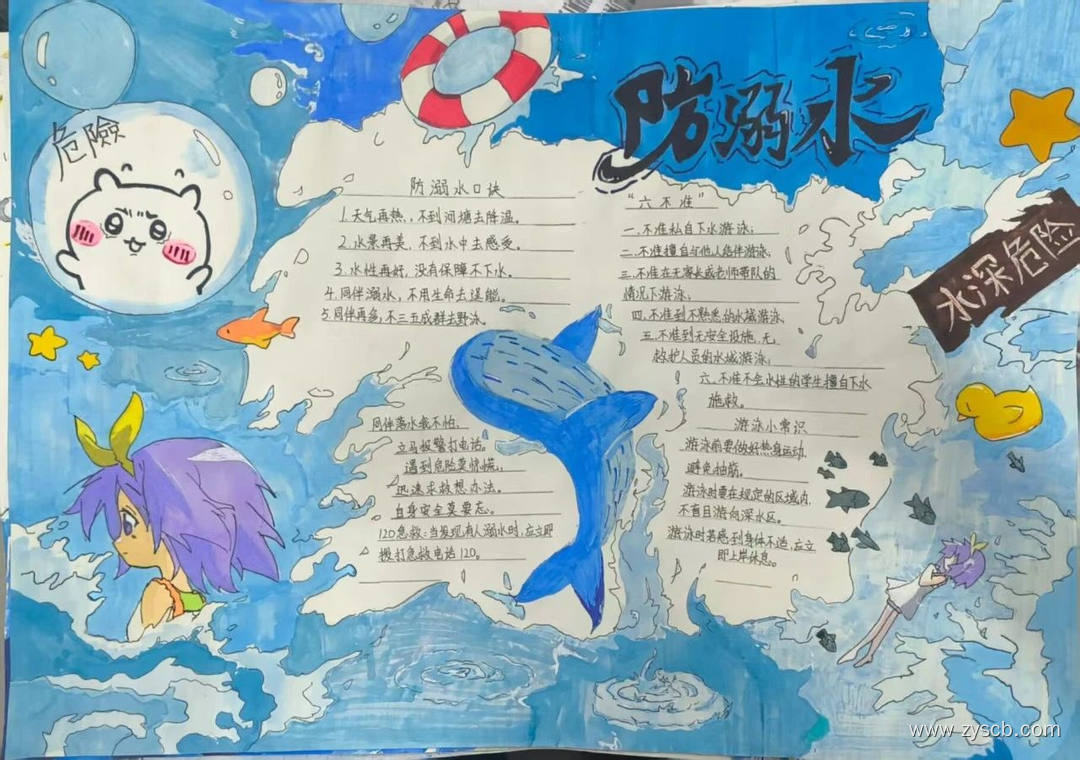 防溺水
危險
水深危险
防溺水口诀
1.天气再热,不到河塘去降温。
2.水景再美,不到水中去感受。
3.水性再好,没有保障不下水。
4.同伴溺水,不用生命去逞能。
5.同伴再多,不三五成群去野泳。
同伴落水我不怕,
立马报警打电话。
遇到危险莫惊慌,
迅速求救想办法。
自身安全莫要忘。
120急救:当发现有人溺水时,应立即
拨打急救电话120。
“六不准”
一.不准私自下水游泳;
二.不准擅自与他人结伴游泳,
三.不准在无家长或老师带队的
情况下游泳;
四.不准到不熟悉的水域游泳,
五.不准到无安全设施、无
救护人员的水域游泳;
六.不准不会水性的学生擅自下水
施救。
游泳小常识
游泳前要做好热身运动,
避免抽筋。
游泳时要在规定的区域内,
不盲目游向深水区。
游泳时若感到身体不适,应立
即上岸休息。
www.zyscb.com